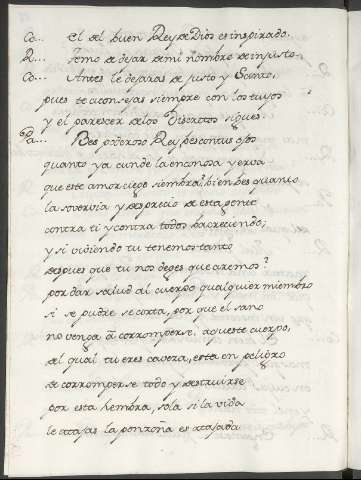 Co... el del buen Rey de Dios es inspirado.
R... temo de dejar de mi nombre de injusto
Co... Antes le dejaras de justo y Santo,
pues te aconsejas siempre con los tuyos
y el parescer de los Discretos sigues
Pa... Bes poderoso Rey bes con tus ojos
quanto ya cunde la enconosa yerva
que este amor ciego siembra? bien bes quanto
la sovervia y desprecio de esta gente
contra ti y contra todos ba creciendo;
y si vibiendo tu tenemos tanto
despues que tu nos dejes que aremos?
por dar salud al cuerpo qualquier miembro
si se pudre se corta, por que el sano
no venga a corromperse. aqueste cuerpo,
del qual tu eres cavera, esta en peligro
de corromperse todo y destruirse
por esta hembra, sola si la vida
le atajas la ponzoña es atajada